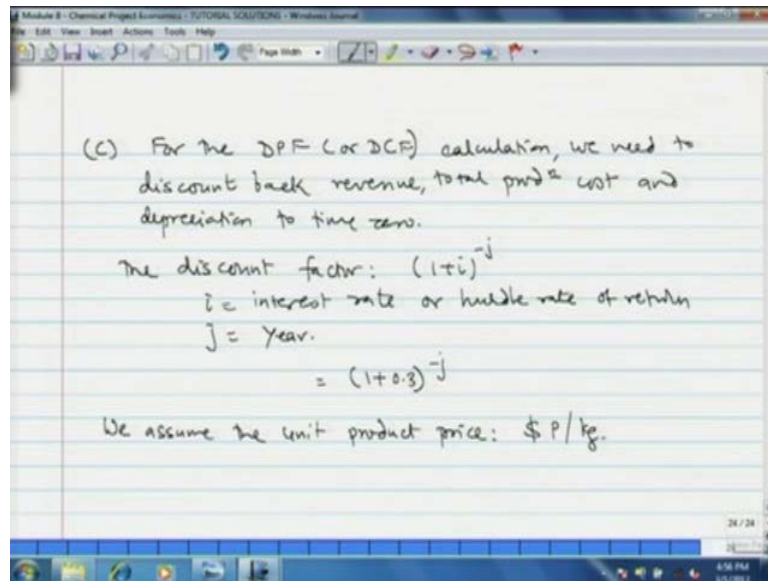 Module 8 - Chemical Project Economics - TUTORIAL SOLUTIONS - Windows Journal
File Edit View Insert Actions Tools Help
Page Width
(C) For the DPF (or DCF) calculation, we need to
discount back revenue, total prodn cost and
depreciation to time zero.
The discount factor: (1+i)^-j
i = interest rate or hurdle rate of return
j = Year.
= (1+0.3)^-j
We assume the unit product price: $ P/kg.
24 / 24
4:56 PM